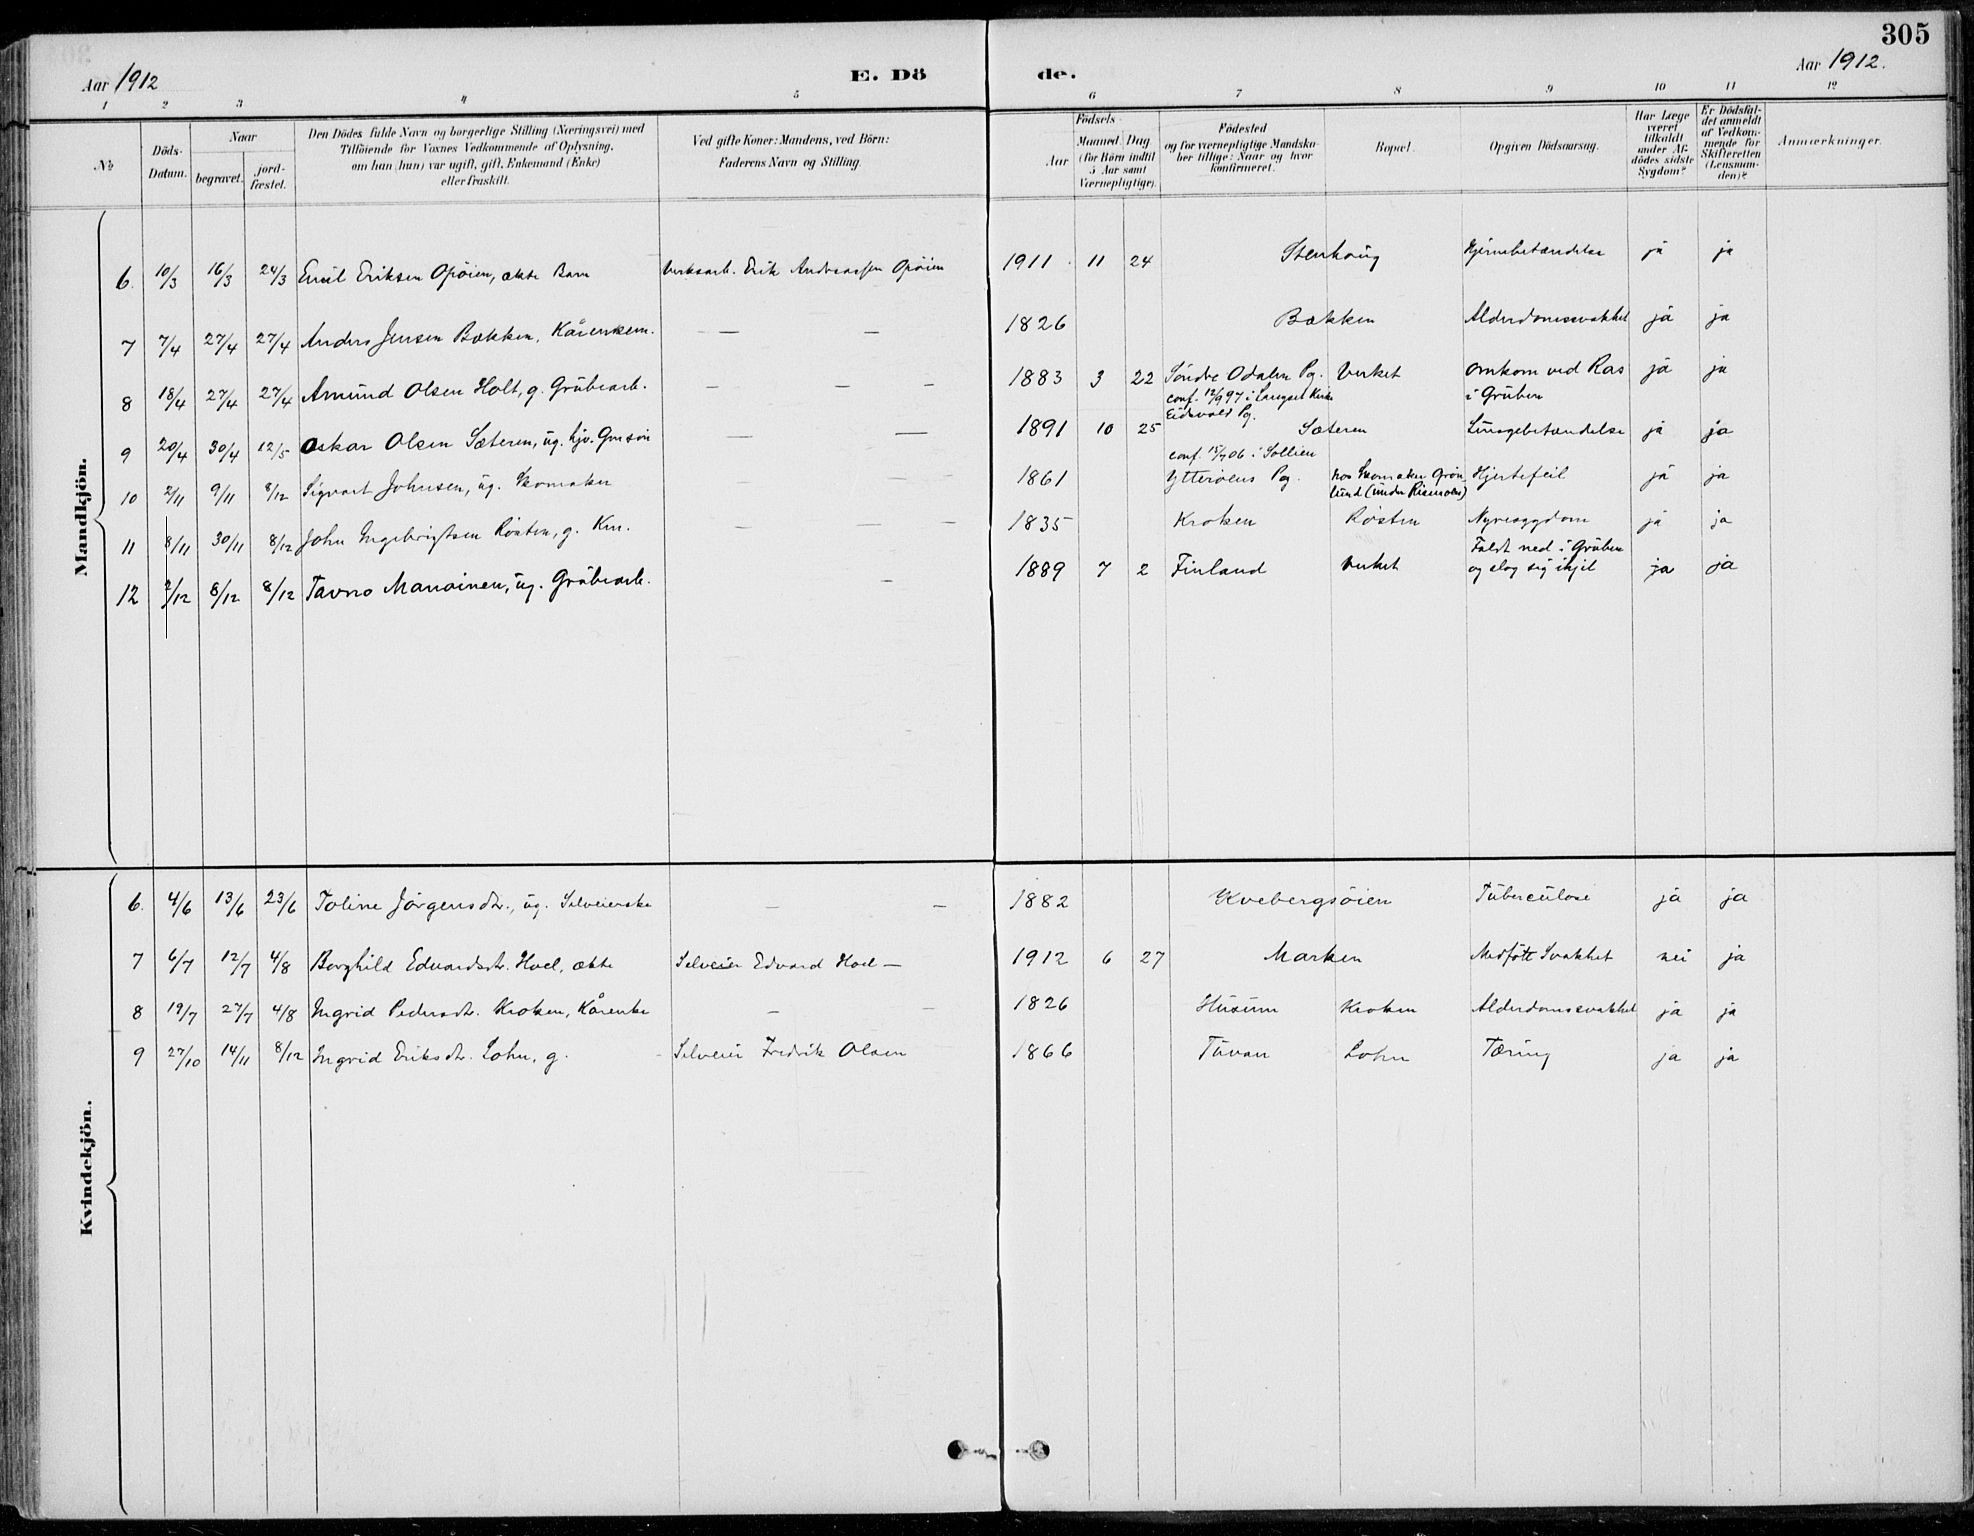 305
Aar 1912
E. Dö
de.
Aar 1912.
1 2 3 4 5 6 7 8 9 10 11 12
№
Döds-
Datum.
Naar
begravet.
jord-
fæstet.
Den Dödes fulde Navn og borgerlige Stilling (Næringsvei) med
Tilföiende for Voxnes Vedkommende af Oplysning,
om han (hun) var ugift, gift, Enkemand (Enke)
eller fraskilt.
Ved gifte Koner: Mandens, ved Börn:
Faderens Navn og Stilling.
Födsels-
Aar
Maaned Dag
(for Börn indtil
5 Aar samt
Værnepligtige).
Födested
og for værnepligtige Mandska-
ber tillige: Naar og hvor
konfirmeret.
Bopæl.
Opgiven Dödsaarsag.
Har Læge
været
tilkaldt
under Af-
dödes sidste
Sygdom?
Er Dödsfal-
det anmeldt
af Vedkom-
mende for
Skifteretten
(Lensman-
den)?
Anmærkninger.
Mandkjön.
6. 10/3 16/3 24/3 Emil Eriksen Opöien, ekte Barn Verksarb. Erik Andreassen Opöien 1911 11 24 Stenhoug Hjernebetændelse ja ja
7 7/4 27/4 27/4 Anders Jensen Bækken, Kårenkem. — — 1826 Bækken Alderdomssvakhet ja ja
8 18/4 27/4 27/4 Amund Olsen Holt, g. Grubearb. — — — 1883 3 22 Söndre Odalen Pg. Verket Omkom ved Ras ja ja
conf. 12/9 97 i Langset Kirke i Gruben
Eidsvold Pg.
9 20/4 30/4 12/5 Oskar Olsen Sæteren, ug. hjv. Gmsön — — 1891 10 25 Sæteren Lungebetændelse ja ja
conf. 15/7 06 i Sollien
10 2/11 9/11 8/12 Sigvart Johnsen, ug. Skomaker — — 1861 Ytteröens Pg. hos Skomaker Grön- Hjertefeil ja ja
lund (under Rismoen)
11 8/11 30/11 8/12 John Ingebrigtsen Rösten, g. Km. — — — 1835 Kroken Rösten Nyresygdom ja ja
12 2/12 8/12 8/12 Tavno Manoinen, ug. Grubearb. — 1889 7 2 Finland Verket Faldt ned i Gruben
og slog sig ihjel ja ja
Kvindekjön.
6. 4/6 13/6 23/6 Toline Jörgensdtr., ug. Selveierske — — 1882 Kvebergsöien Tuberculose ja ja
7 6/7 12/7 4/8 Borghild Edvardsdtr. Hoel, ekte Selveier Edvard Hoel — 1912 6 27 Marken Medfött Svakhet nei ja
8 19/7 27/7 4/8 Ingrid Pedersdtr. Kroken, Kårenke — — 1826 Husum Kroken Alderdomssvakhet ja ja
9 27/10 14/11 8/12 Ingrid Eriksdtr. Lohn, g. Selveier Fredrik Olsen 1866 Tuvan Lohn Tæring ja ja